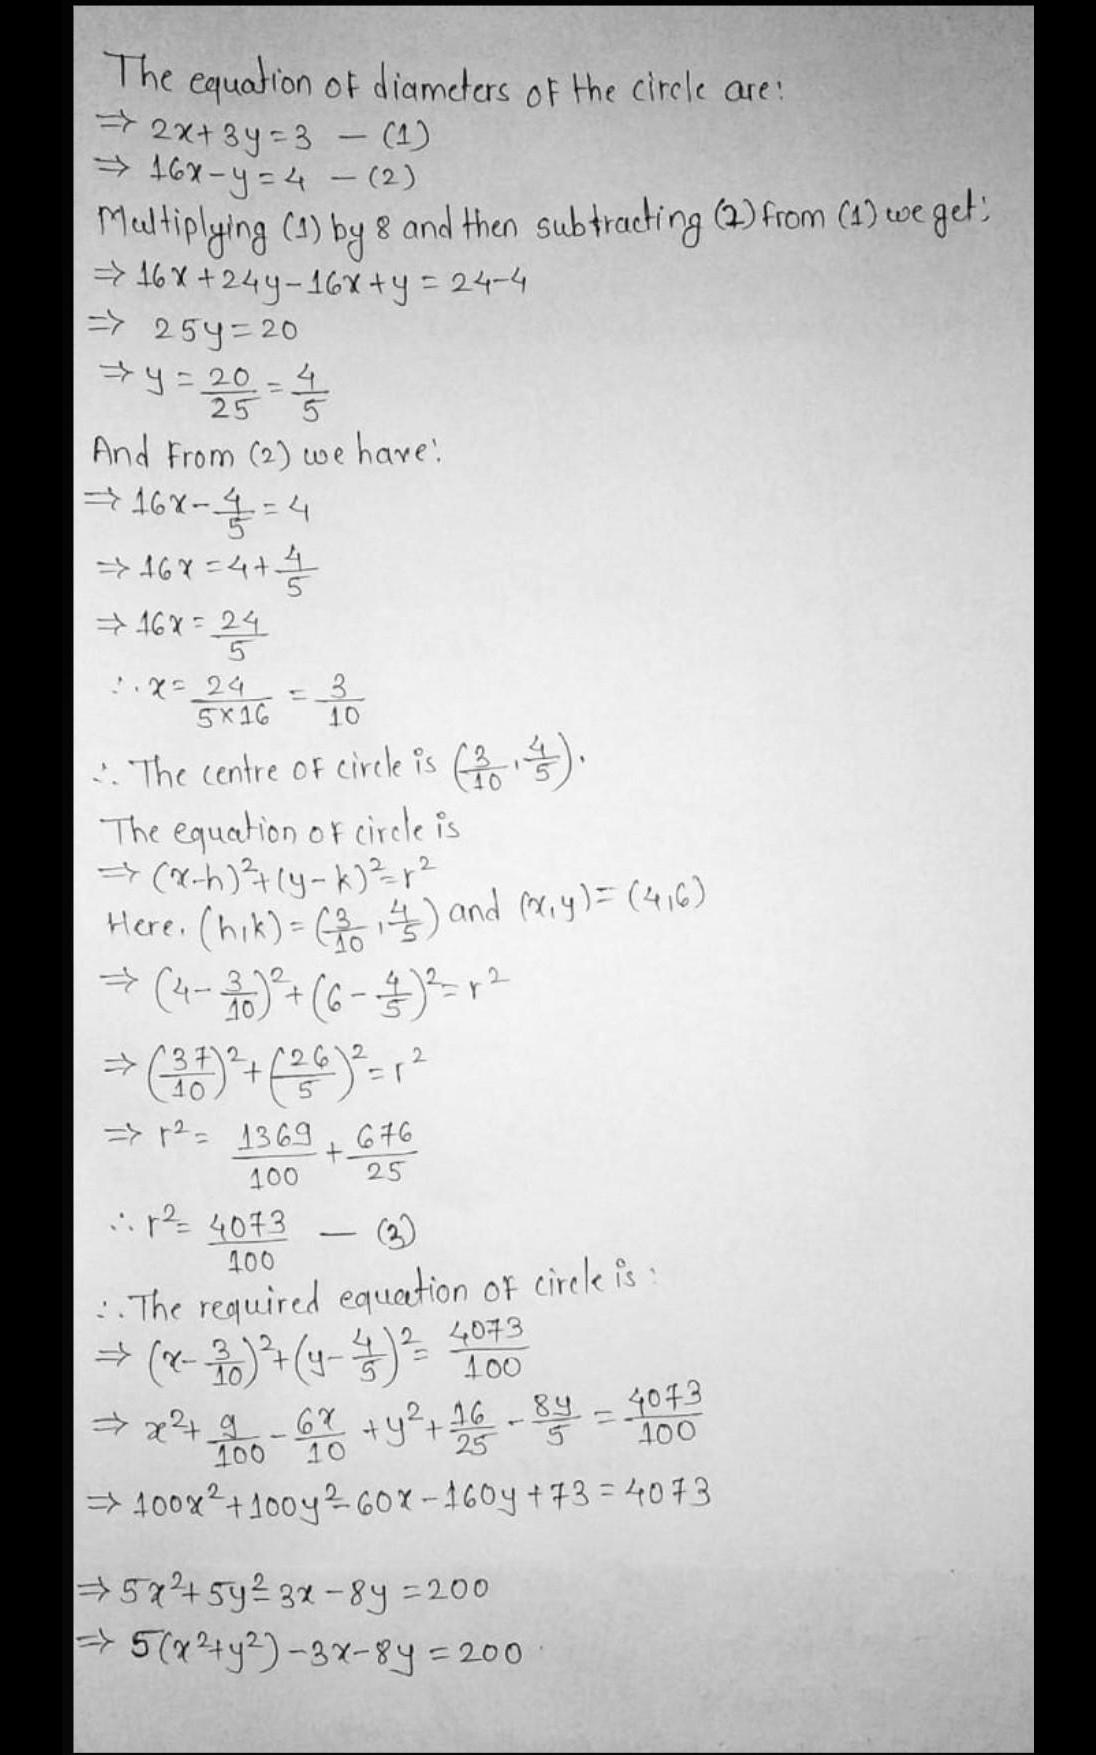 The equation of diameters of the circle are:
⇒ 2x+3y=3 – (1)
⇒ 16x-y=4 – (2)
Multiplying (1) by 8 and then subtracting (2) from (1) we get:
⇒ 16x+24y-16x+y=24-4
⇒ 25y=20
⇒ y=20/25=4/5
And From (2) we have:
⇒ 16x-4/5=4
⇒ 16x=4+4/5
⇒ 16x=24/5
∴ x=24/(5×16)=3/10
∴ The centre of circle is (3/10, 4/5).
The equation of circle is
⇒ (x-h)²+(y-k)²=r²
Here, (h,k)=(3/10, 4/5) and (x,y)=(4,6)
⇒ (4-3/10)²+(6-4/5)²=r²
⇒ (37/10)²+(26/5)²=r²
⇒ r²=1369/100+676/25
∴ r²=4073/100 – (3)
∴ The required equation of circle is:
⇒ (x-3/10)²+(y-4/5)²=4073/100
⇒ x²+9/100-6x/10+y²+16/25-8y/5=4073/100
⇒ 100x²+100y²-60x-160y+73=4073
⇒ 5x²+5y²-3x-8y=200
⇒ 5(x²+y²)-3x-8y=200.